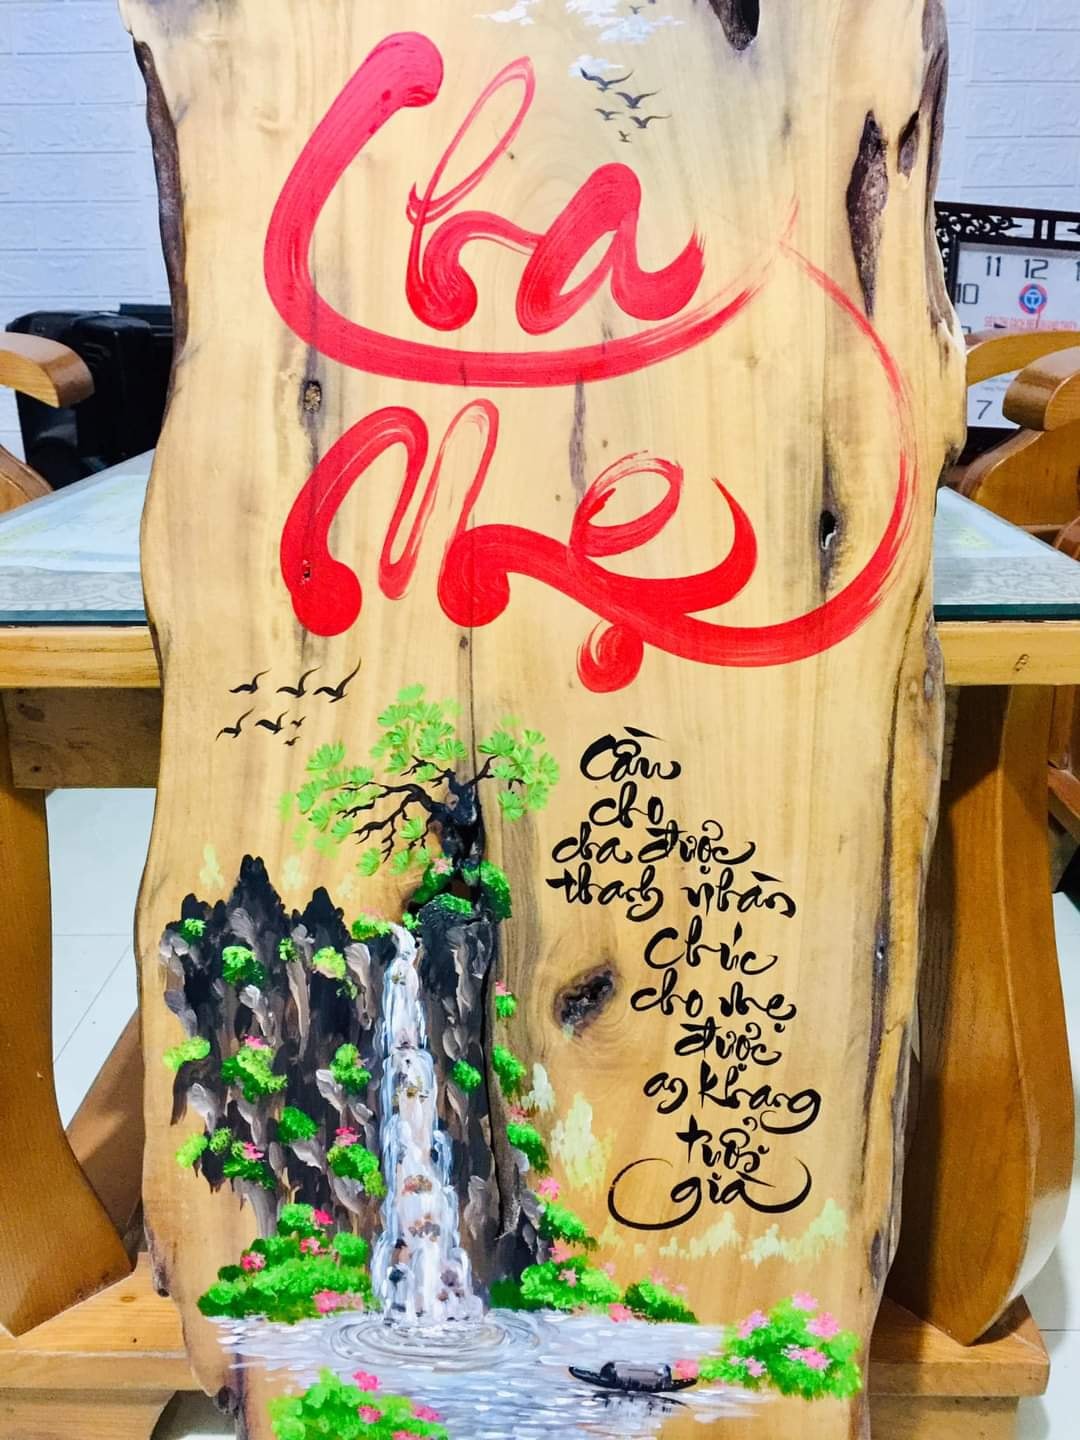 Cha
Mẹ
Cầu
cho
cha được
thanh nhàn
Chúc
cho mẹ
được
an khang
tuổi
già
11 12 1
10
7